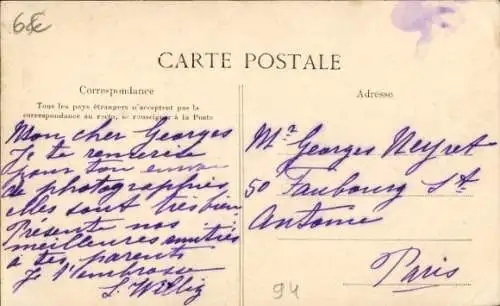 6 €
CARTE POSTALE
Correspondance
Tous les pays étrangers n'acceptent pas la
correspondance au recto, se renseigner à la Poste
Adresse
Mon cher Georges
Je te remercie
pour ton envoi
de photographies
elles sont très bien
Présente nos
meilleures amitiés
a tes parents
Je t'embrasse
Mr Georges Neyret
50 Faubourg St
Antoine
Paris
94